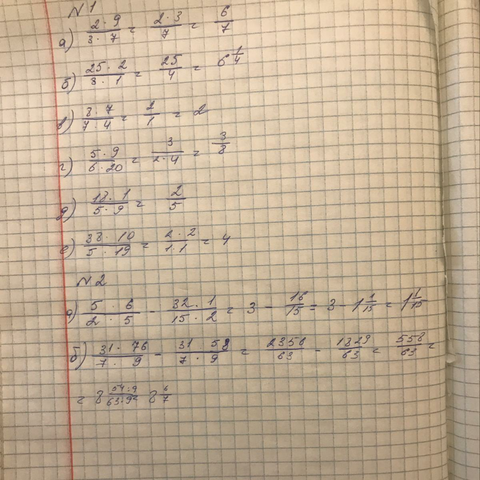 №1
а) 2·9/3·7 = 2·3/7 = 6/7
б) 25·2/8·1 = 25/4 = 6 1/4
в) 8·7/7·4 = 2/1 = 2
г) 5·9/6·20 = 3/2·4 = 3/8
д) 18·1/5·9 = 2/5
е) 38·10/5·19 = 2·2/1·1 = 4
№2
а) 5·6/2·5 - 32·1/15·2 = 3 - 16/15 = 3 - 1 1/15 = 1 1/15
б) 31·76/7·9 - 31 59/7·9 = 2356/63 - 1829/63 = 558/63 =
= 8 54:9/63:9 = 8 6/7